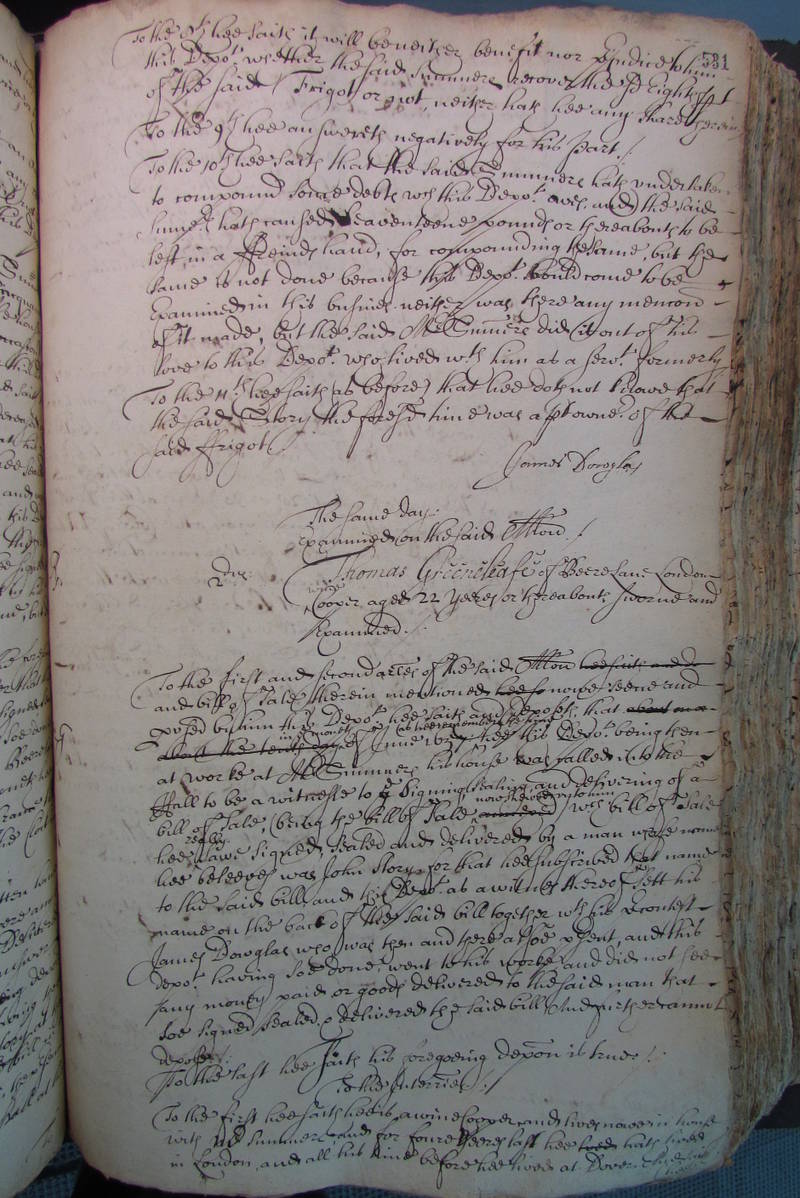 531
To the 8th hee saith it will be neither benefit nor p'iudice to him
this Depot. whether the said Summers recover the sd Eighth pt
of the said Frigot or not, neither hath hee any share therein
To the 9th hee answereth negatively for his part./
To the 10th hee saith that the said Mr Summers hath undertaken
to compound some debts wch this Depot. owes and the said
Summers hath caused seaventeene pounds or thereabouts to be
left in a ffreinds hand, for compounding the same, but the
same is not done because this Depot. should come to be
Examined in this busines neither was there any mencon
of it made, but the said Mr Summers did it out of his
love to this Depot. who lived wth him as a servt. formerly
To the 11th. hee saith (as before) that hee doth not knowe that
the said Story the foresd time was a pt owner. of the
said ffrigot./
James Dowglas
The same day:
Examined on the said Allon./
2 Thomas Greeneleafe of Beere Lane London
wine
Cooper aged 22 yeeres or thereabouts sworne and
Examined./
To the first and second arles of the said Allon hee saith and de
and bill of Sale therein mentioned hee so nowe seene and
pvsed by him this Depot. hee saith and deposeth, that about
in ye month (as hee remembers the time)
about the tenth day of June hee this Depot. being then
at worke at Mr Summers his house was called into the
Hall to be a witnesse to ye signing sealing and delivering of a
bill of Sale, (being the bill of Sale nowe shewed unto him) wch bill of Sale
really
hee sawe signed sealed and delivered by a man whose name
hee beleeves was John Story for that hee subscribed that name
to the said bill, and this Depot. as a witnes thereof sett his
name on the back of the said bill together wth his Contest
James Dowglas who was then and there alsoe p'sent, and this
depot. having soe done went to his worke and did not see
any money paid or goods delivered to the said man that
soe signed sealed & delivered the said bill And further cannot
depose./
To the last hee saith his foregoeing depon is true./
To the Interries./
To the first hee saith hee is a wine Cooper and lives nowe in house
with Mr Summers, and for foure yeeres last hee lived hath lived
in London, and all his time before hee lived at Dover